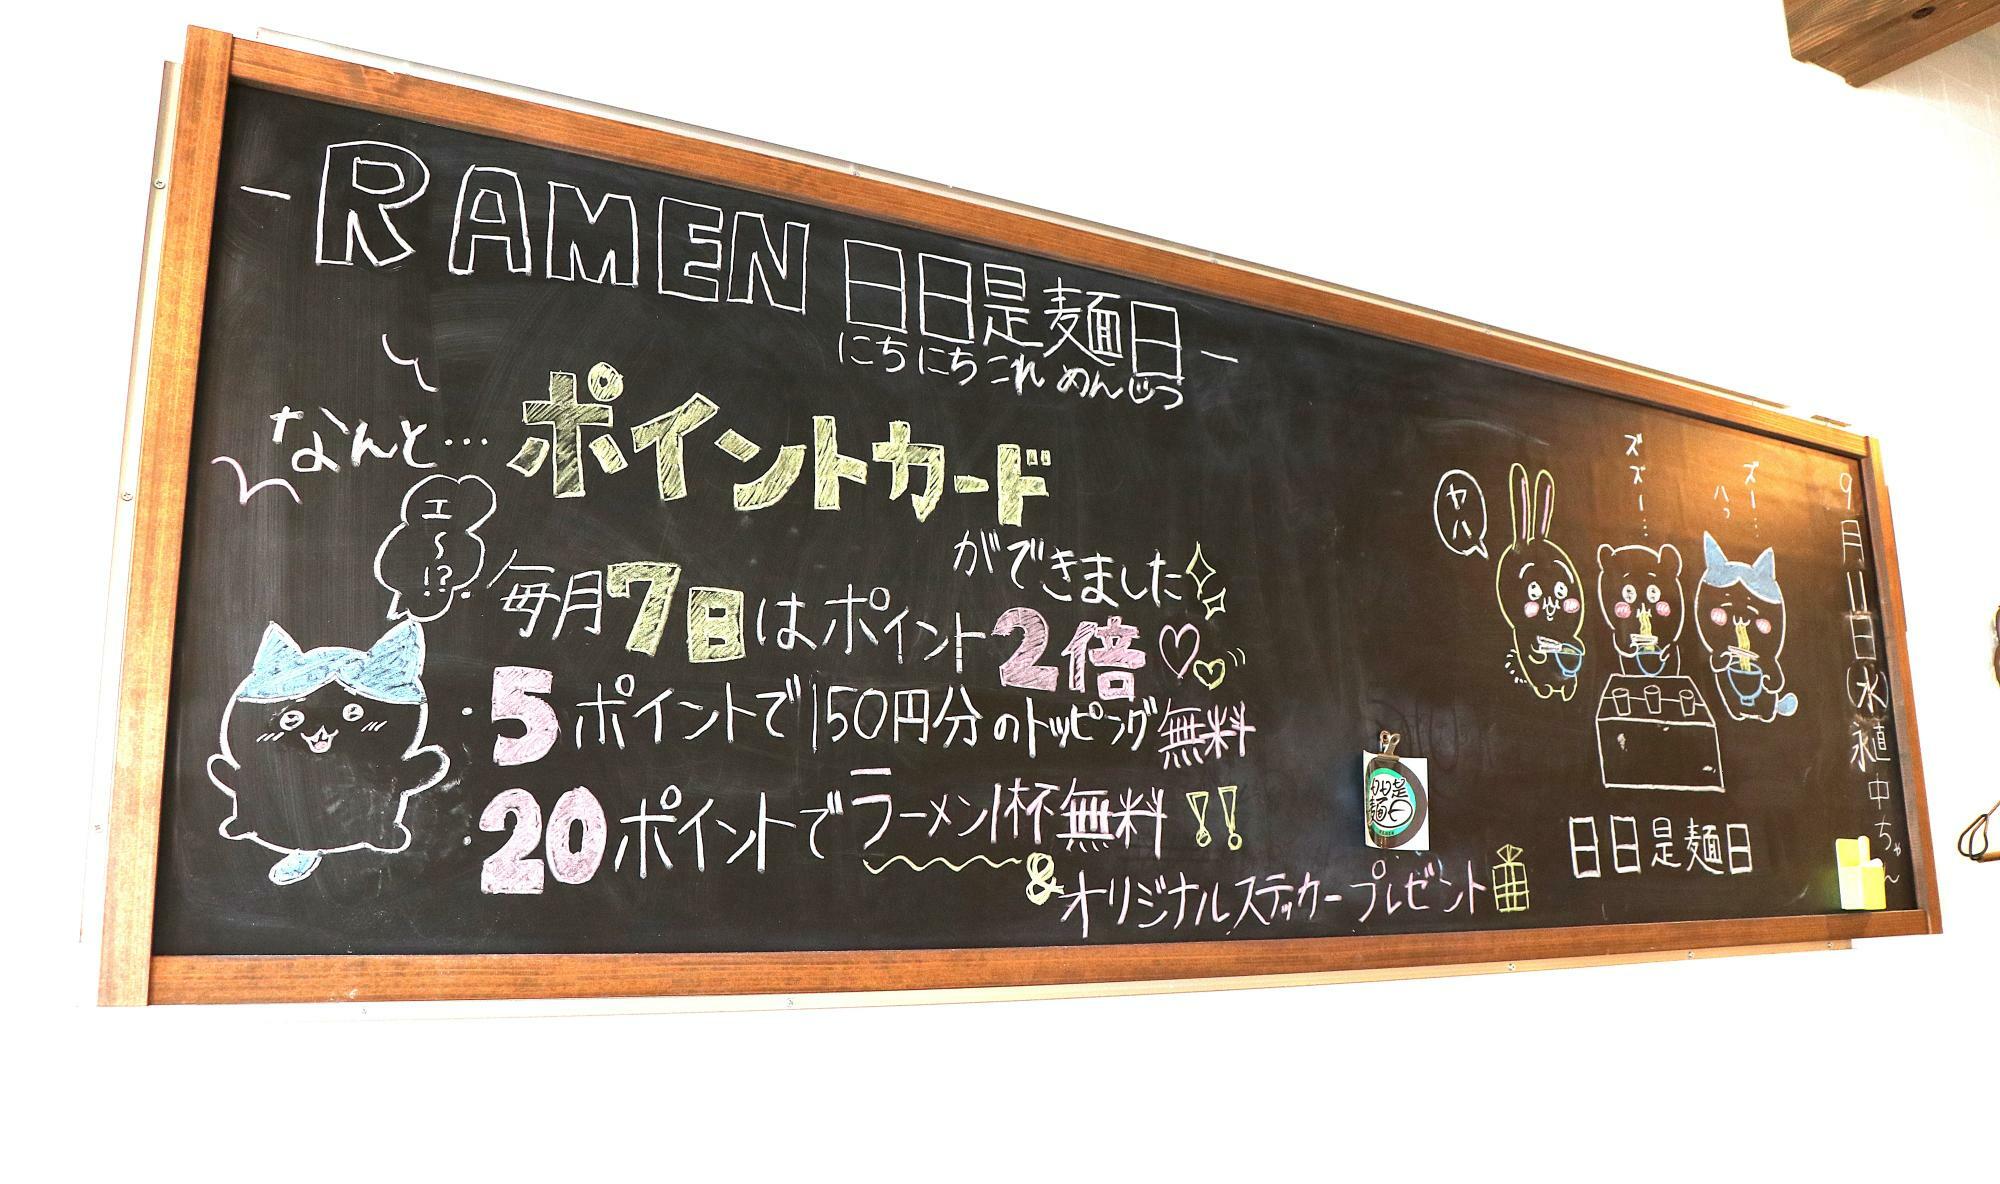 -RAMEN 日日是麺日-
にちにちこれめんじつ
なんと…
ポイントカード
ができました
エ〜!?
毎月7日はポイント2倍
・5ポイントで150円分のトッピング無料
・20ポイントでラーメン1杯無料!!
&オリジナルステッカープレゼント
ヤハ
ズズー…
ズー…
ハっ
日日是麺日
日日是麺日
9月11日(水)
道中ちゃん